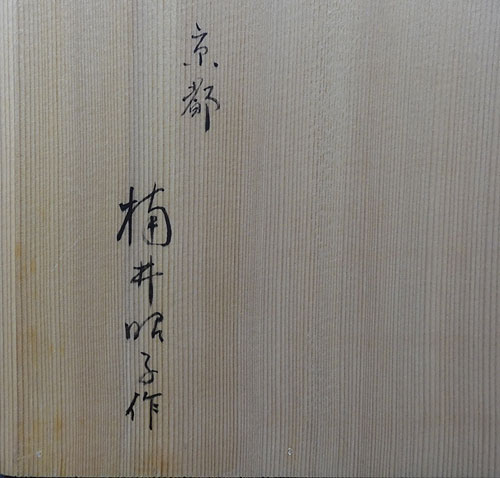 京都
楠井昭子作